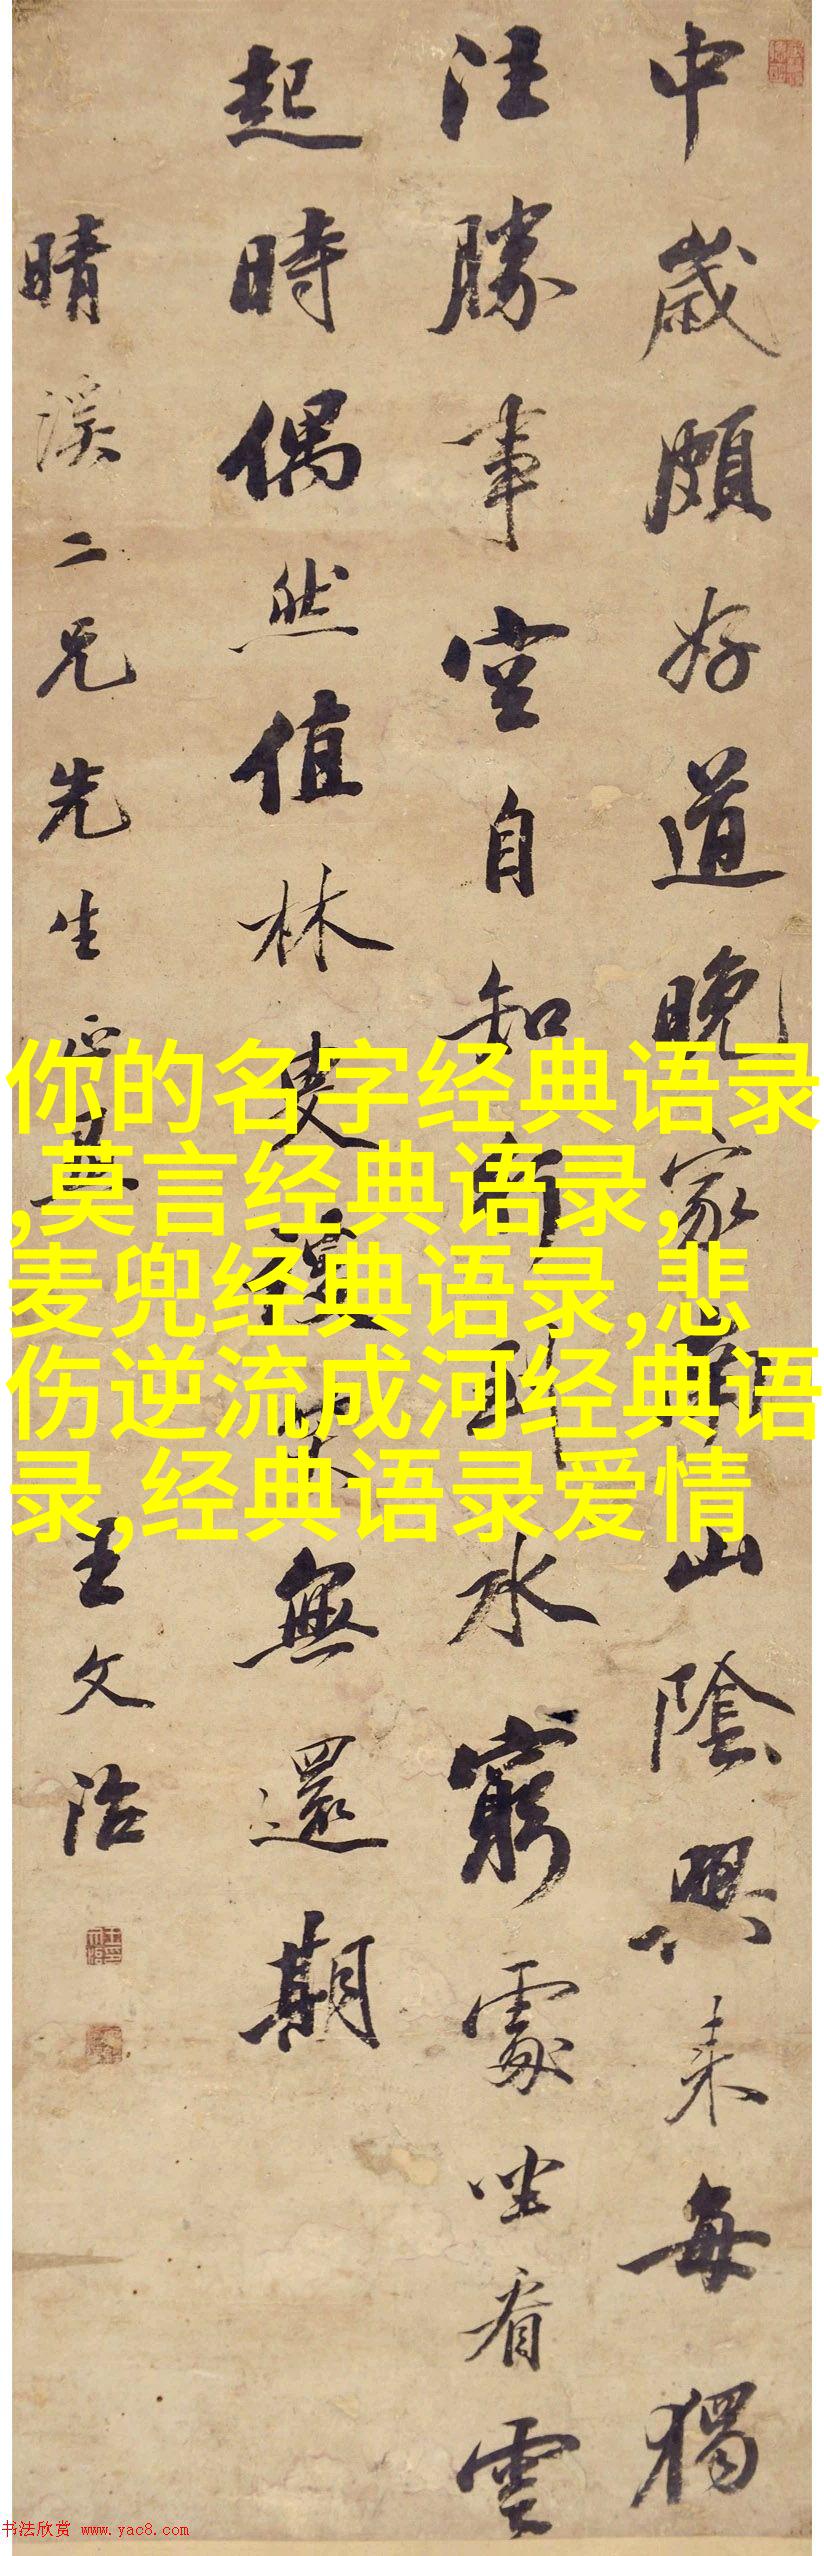 中歲頗好道晚家南山陰興來每獨
往勝事空自知行到水窮處坐看雲
起時偶然值林叟談笑無還期
晴溪二兄先生正 王文治
你的名字经典语录
,莫言经典语录,
麦兜经典语录,悲
伤逆流成河经典语
录,经典语录爱情
书法欣赏 www.yac8.com